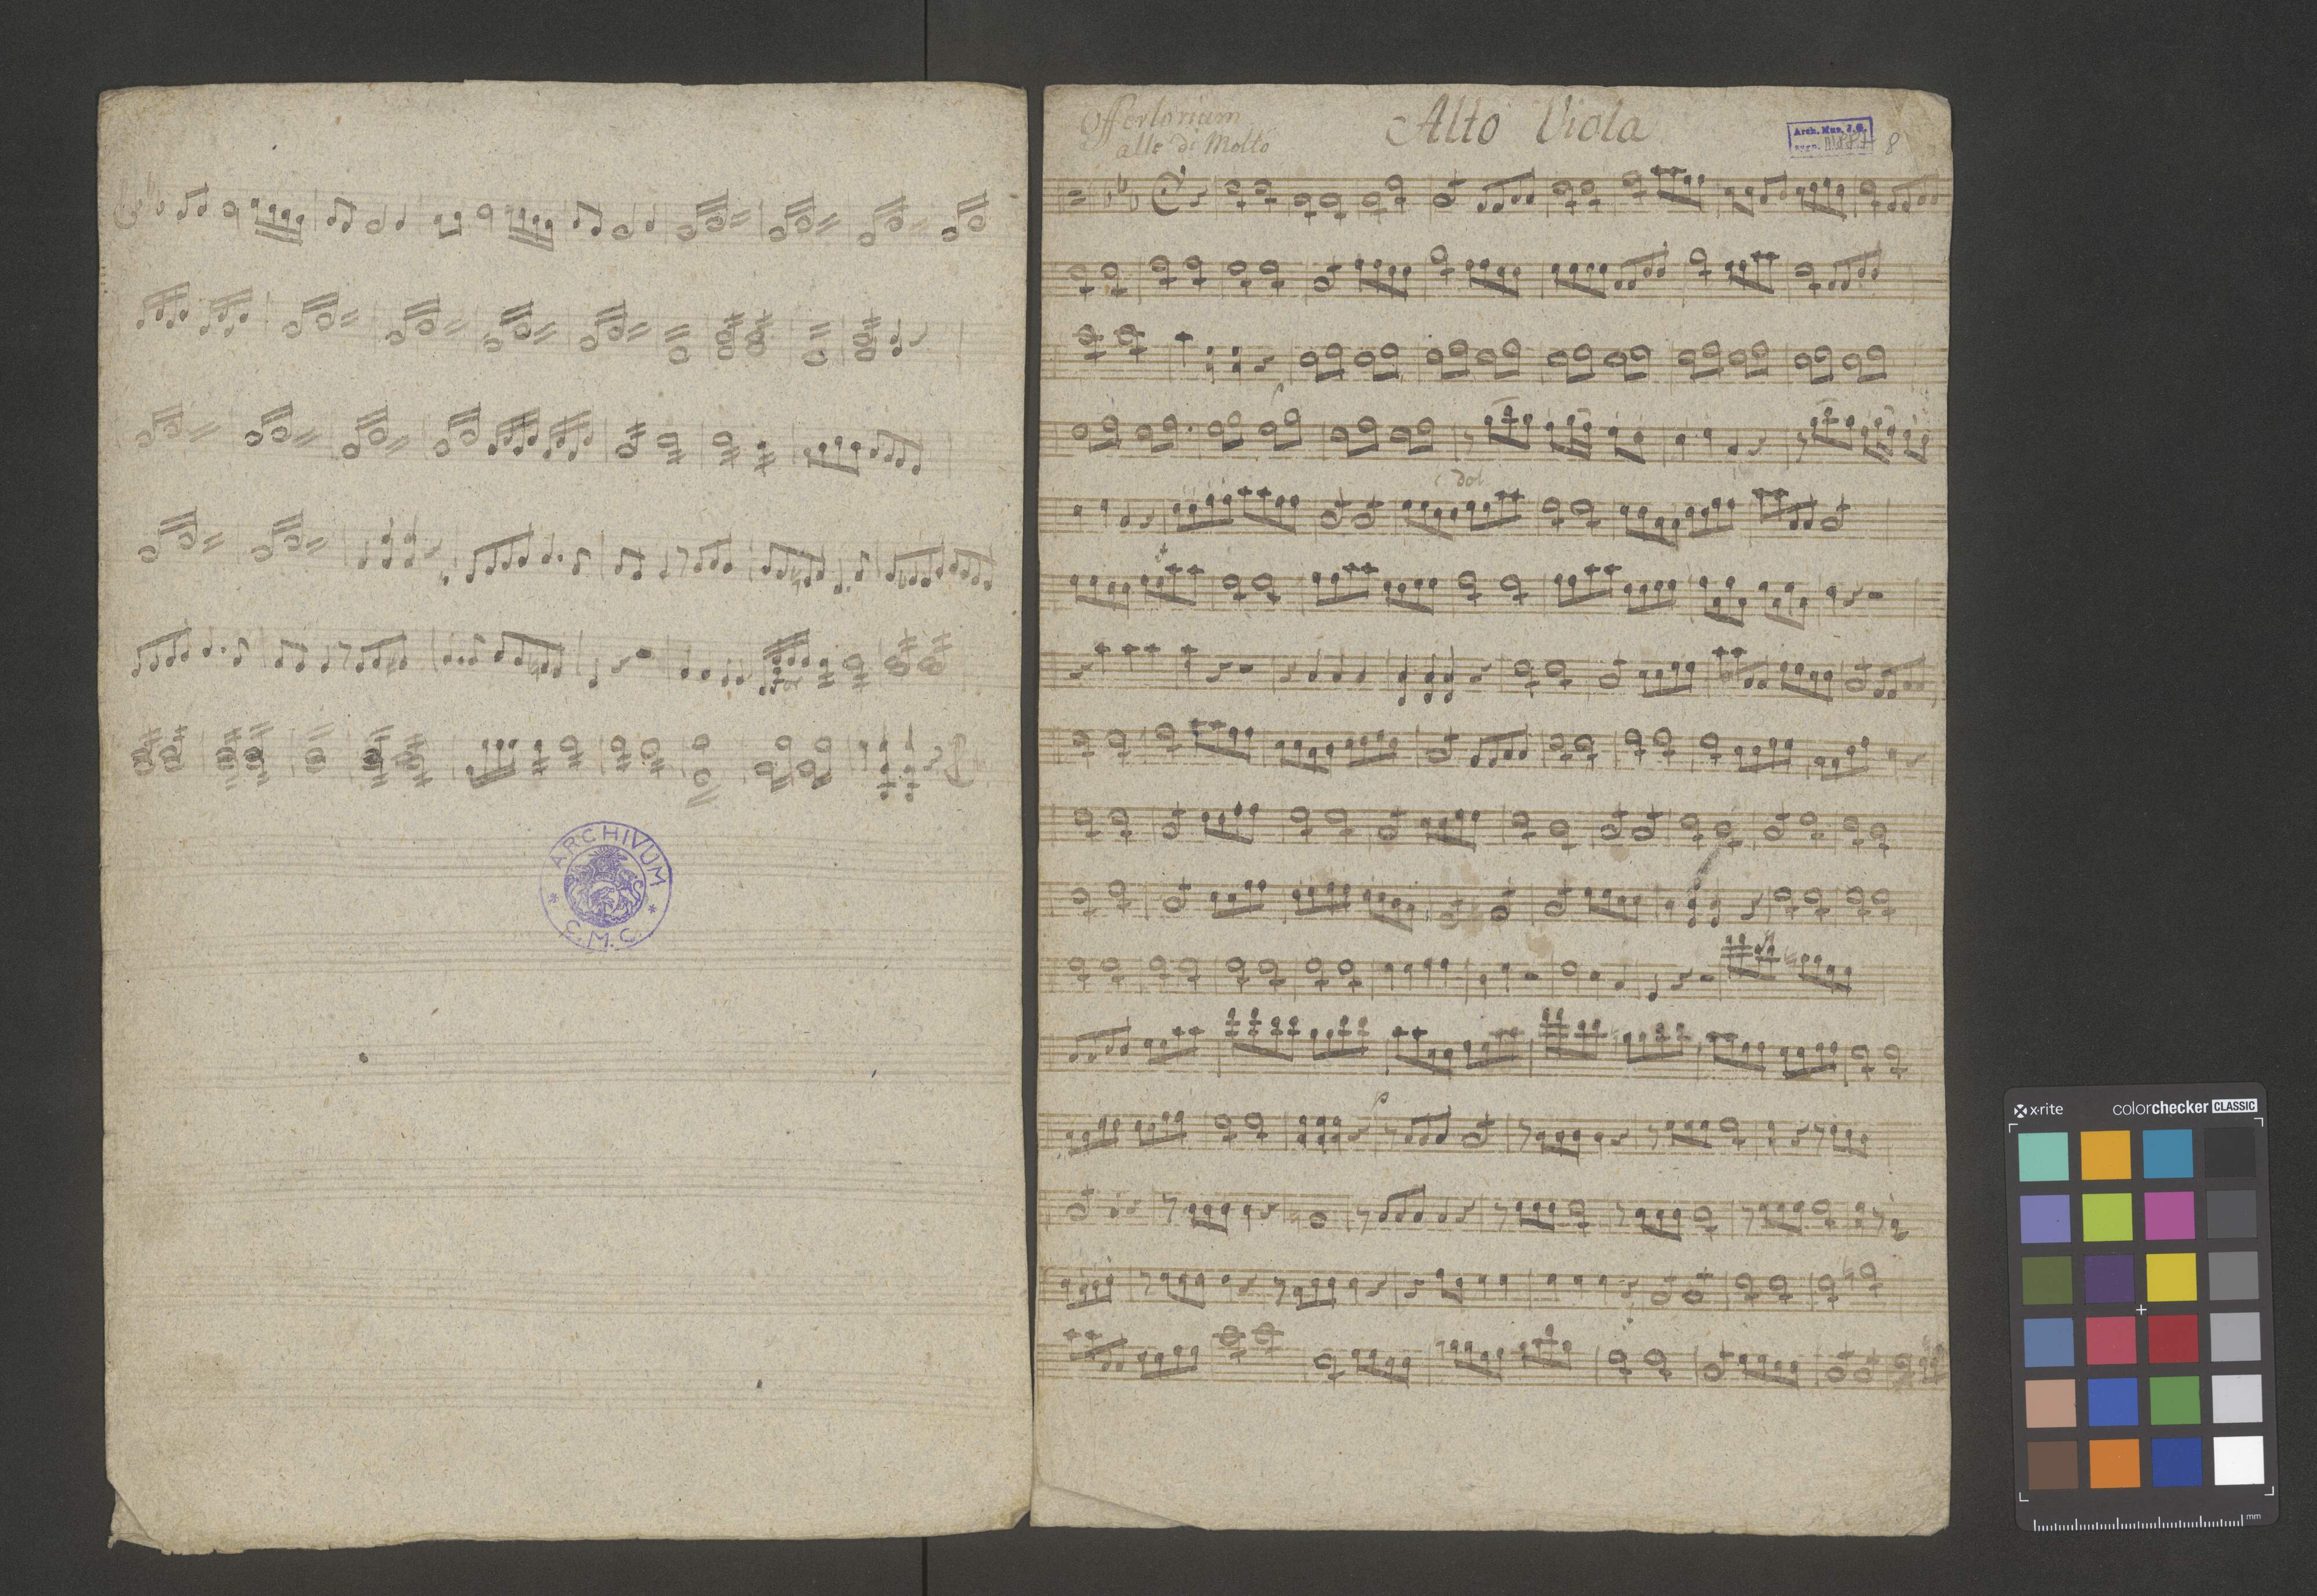 ARCHIVUM
C. M. C.
Offertorium
Alto Viola
alle di Molto
Arch. Mus. J. G.
sygn.
8
dol
x-rite
colorchecker CLASSIC
mm